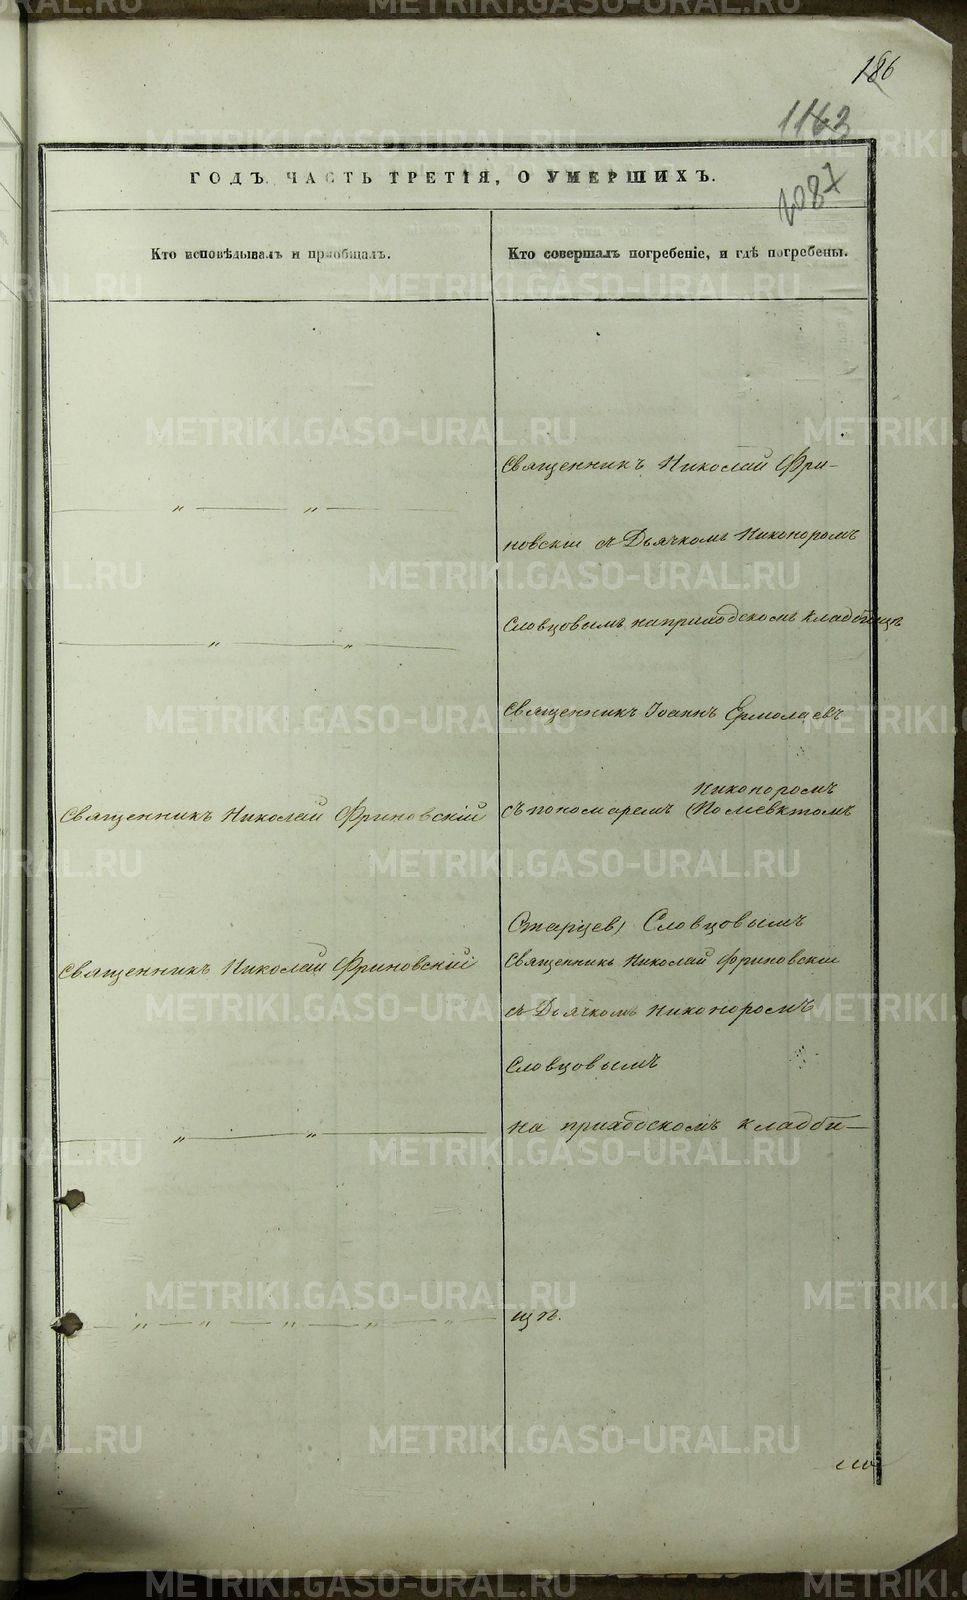 186
1163
2087
ГОДЪ. ЧАСТЬ ТРЕТІЯ, О УМЕРШИХЪ.
Кто исповѣдывалъ и пріобщалъ.
Кто совершалъ погребеніе, и гдѣ погребены.
Священникъ Николай Фри-
— „ — „ —
новскій съ Дьячкомъ Никоноромъ
Словцовымъ на приходскомъ кладбищѣ
— „ — „ —
Священникъ Іоаннъ Ермолаевъ
Никоноромъ
Священникъ Николай Фриновскій
съ пономаремъ (Полиевктомъ
Старцев) Словцовымъ
Священникъ Николай Фриновскій
Священникъ Николай Фриновскій
съ Дьячкомъ Никоноромъ
Словцовымъ
на приходскомъ кладби-
— „ — „ —
щѣ.
— „ — „ — „ — „ — „ —
METRIKI.GASO-URAL.RU